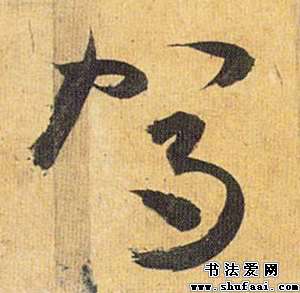 驾
书法爱网
www.shufaai.com